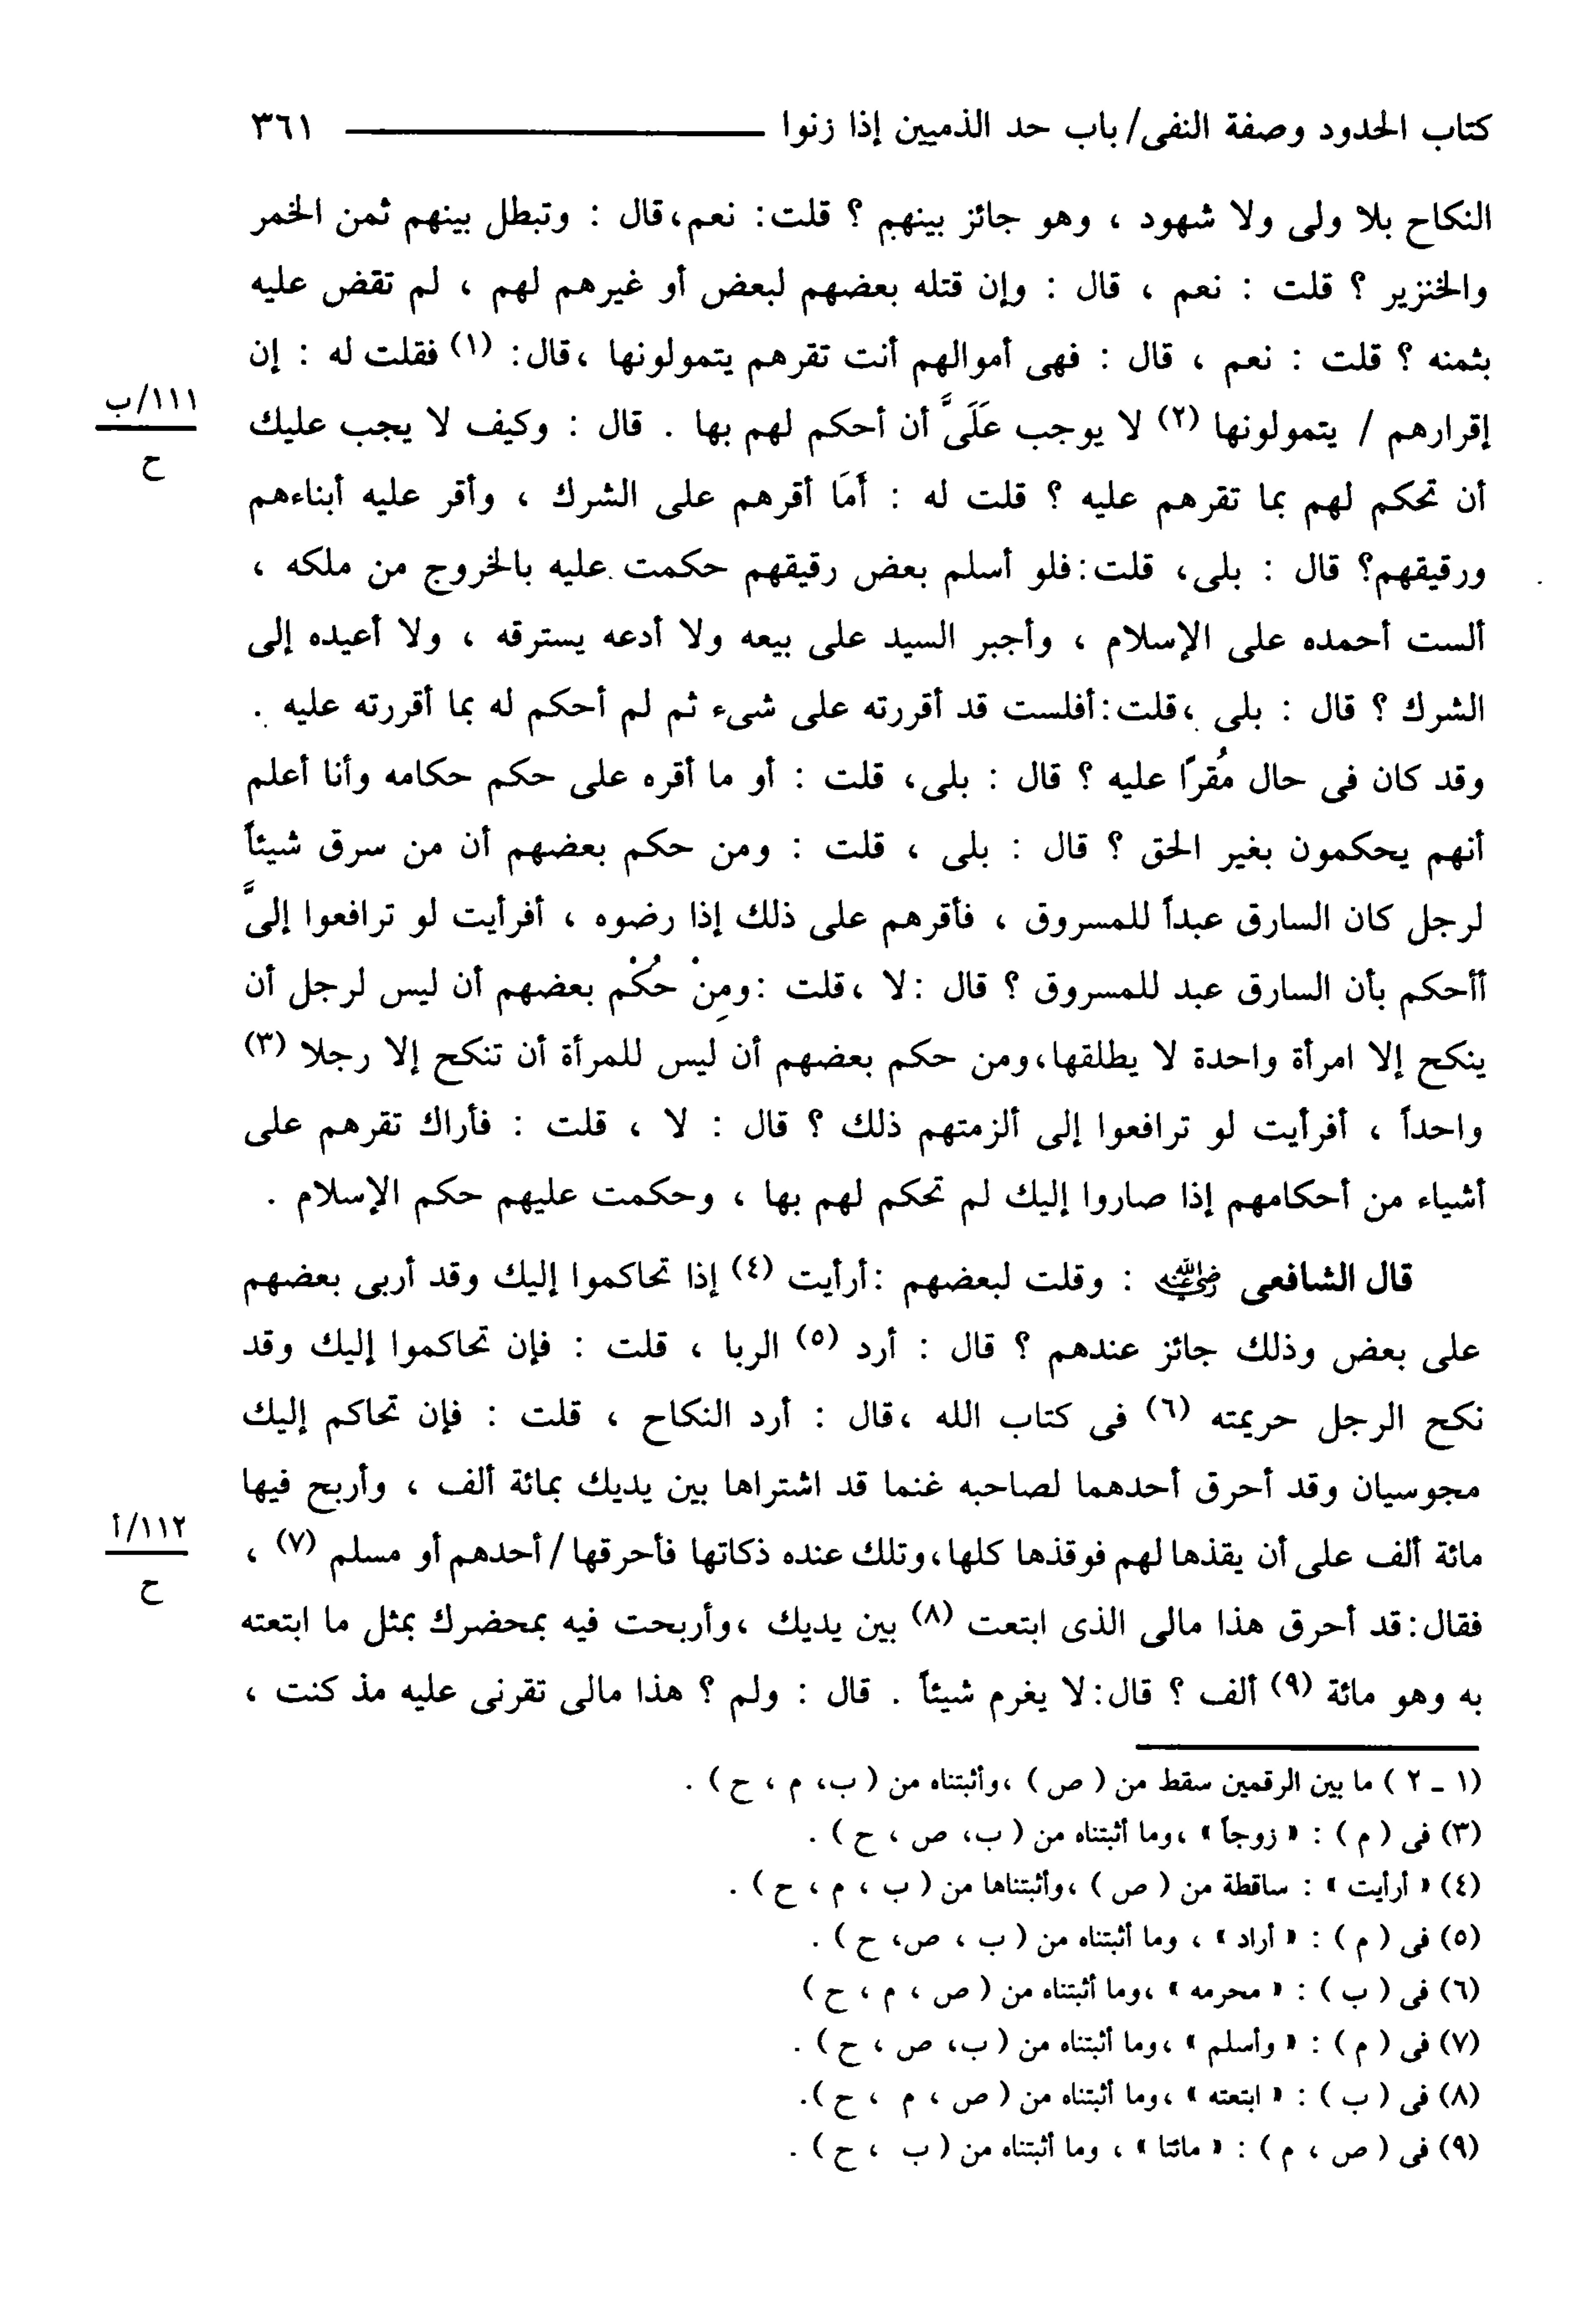 كتاب الحدود وصفة النفى/ باب حد الذميين إذا زنوا ٣٦١
النكاح بلا ولى ولا شهود ، وهو جائز بينهم ؟ قلت: نعم،قال : وتبطل بينهم ثمن الخمر
والخنزير ؟ قلت : نعم ، قال : وإن قتله بعضهم لبعض أو غيرهم لهم ، لم تقض عليه
بثمنه ؟ قلت : نعم ، قال : فهى أموالهم أنت تقرهم يتمولونها ،قال: (١) فقلت له : إن
إقرارهم / يتمولونها (٢) لا يوجب عَلَىَّ أن أحكم لهم بها . قال : وكيف لا يجب عليك
١١١/ب
ح
أن تحكم لهم بما تقرهم عليه ؟ قلت له : أَمَا أقرهم على الشرك ، وأقر عليه أبناءهم
ورقيقهم؟ قال : بلى، قلت:فلو أسلم بعض رقيقهم حكمت عليه بالخروج من ملكه ،
ألست أحمده على الإسلام ، وأجبر السيد على بيعه ولا أدعه يسترقه ، ولا أعيده إلى
الشرك ؟ قال : بلى ،قلت:أفلست قد أقررته على شىء ثم لم أحكم له بما أقررته عليه .
وقد كان فى حال مُقرًا عليه ؟ قال : بلى، قلت : أو ما أقره على حكم حكامه وأنا أعلم
أنهم يحكمون بغير الحق ؟ قال : بلى ، قلت : ومن حكم بعضهم أن من سرق شيئاً
لرجل كان السارق عبداً للمسروق ، فأقرهم على ذلك إذا رضوه ، أفرأيت لو ترافعوا إلىَّ
أأحكم بأن السارق عبد للمسروق ؟ قال :لا ،قلت :ومِنْ حُكْم بعضهم أن ليس لرجل أن
ينكح إلا امرأة واحدة لا يطلقها،ومن حكم بعضهم أن ليس للمرأة أن تنكح إلا رجلا (٣)
واحداً ، أفرأيت لو ترافعوا إلى ألزمتهم ذلك ؟ قال : لا ، قلت : فأراك تقرهم على
أشياء من أحكامهم إذا صاروا إليك لم تحكم لهم بها ، وحكمت عليهم حكم الإسلام .
قال الشافعى رضي الله عنه : وقلت لبعضهم :أرأيت (٤) إذا تحاكموا إليك وقد أربى بعضهم
على بعض وذلك جائز عندهم ؟ قال : أرد (٥) الربا ، قلت : فإن تحاكموا إليك وقد
نكح الرجل حريمته (٦) فى كتاب الله ،قال : أرد النكاح ، قلت : فإن تحاكم إليك
مجوسيان وقد أحرق أحدهما لصاحبه غنما قد اشتراها بين يديك بمائة ألف ، وأربح فيها
مائة ألف على أن يقذها لهم فوقذها كلها،وتلك عنده ذكاتها فأحرقها / أحدهم أو مسلم (٧) ،
١١٢/أ
ح
فقال:قد أحرق هذا مالى الذى ابتعت (٨) بين يديك ،وأربحت فيه بمحضرك بمثل ما ابتعته
به وهو مائة (٩) ألف ؟ قال:لا يغرم شيئاً . قال : ولم ؟ هذا مالى تقرنى عليه مذ كنت ،
(١ - ٢ ) ما بين الرقمين سقط من ( ص ) ،وأثبتناه من ( ب، م ، ح ) .
(٣) فى ( م ) : « زوجاً » ،وما أثبتناه من ( ب، ص ، ح ) .
(٤) « أرأيت » : ساقطة من ( ص ) ،وأثبتناها من ( ب ، م ، ح ) .
(٥) فى ( م ) : « أراد » ، وما أثبتناه من ( ب ، ص، ح ) .
(٦) فى ( ب ) : « محرمه » ،وما أثبتناه من ( ص ، م ، ح )
(٧) فى ( م ) : « وأسلم » ،وما أثبتناه من ( ب، ص ، ح ) .
(٨) فى ( ب ) : « ابتعته » ،وما أثبتناه من ( ص ، م ، ح ).
(٩) فى ( ص ، م ) : « مائتا » ، وما أثبتناه من ( ب ، ح ) .